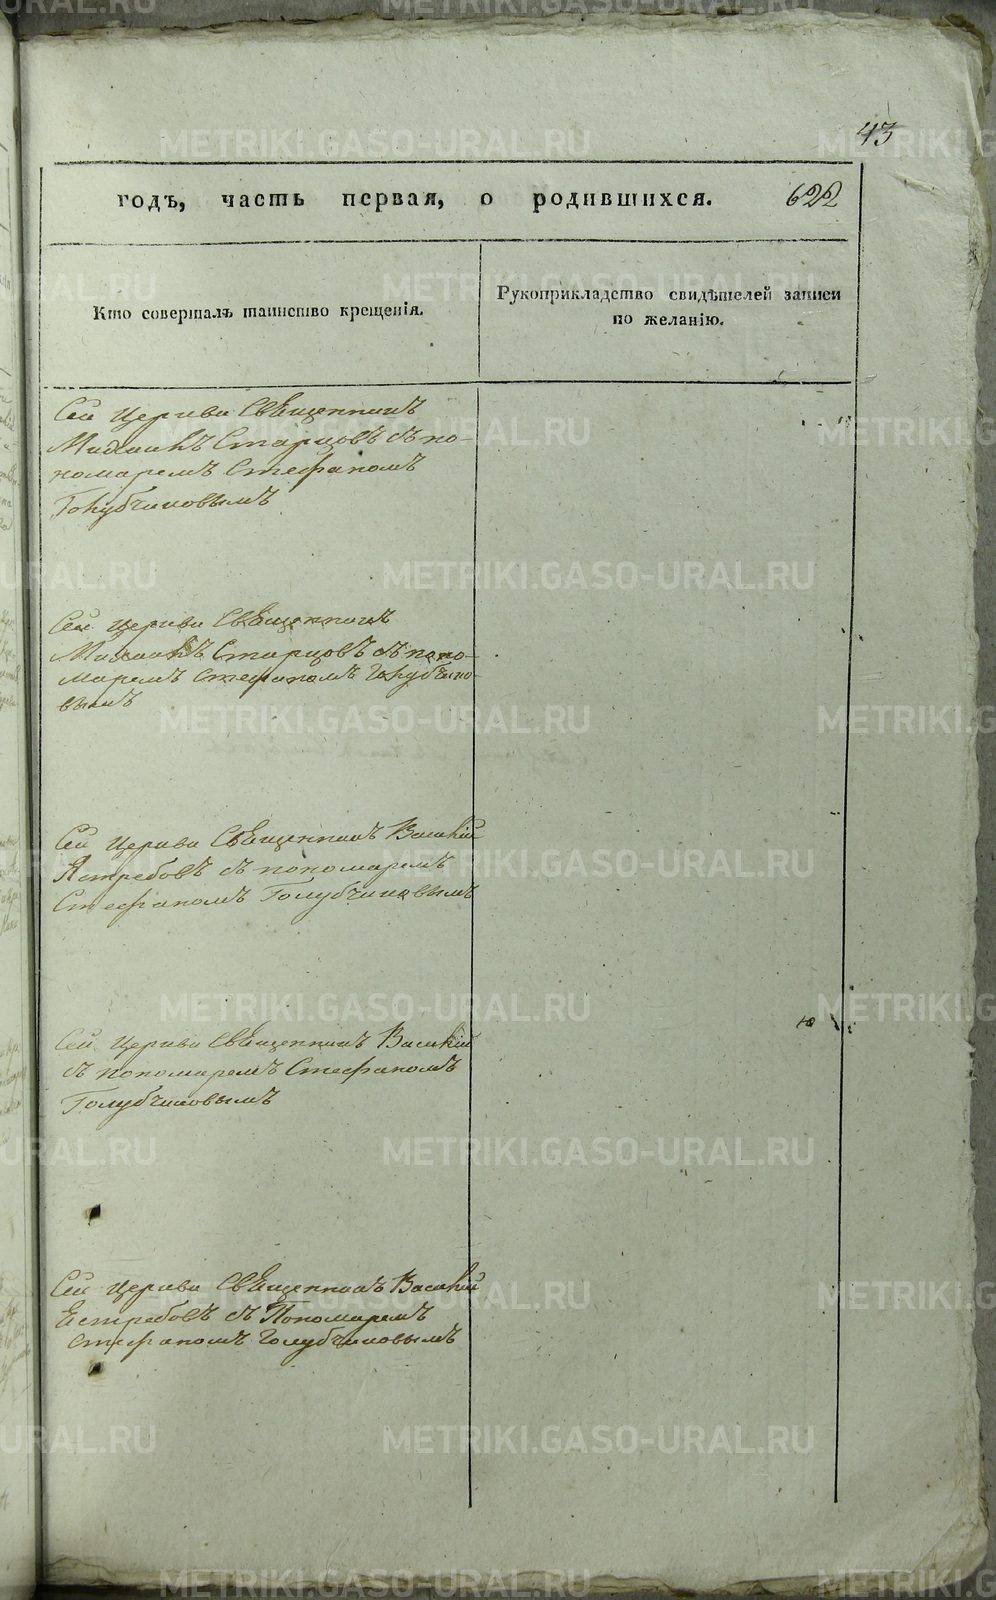 43
годъ, часть первая, о родившихся. 622
Кто совершалъ таинство крещенія.
Рукоприкладство свидѣтелей записи
по желанію.
Сей Церкви Священникъ
Михаилъ Старцовъ съ по-
номаремъ Стефаномъ
Голубчиковымъ
Сей Церкви Священникъ
Михаилъ Старцовъ съ поно-
маремъ Стефаномъ Голубчико-
вымъ
Сей Церкви Священникъ Василій
Ястребовъ съ пономаремъ
Стефаномъ Голубчиковымъ
Сей Церкви Священникъ Василій
съ пономаремъ Стефаномъ
Голубчиковымъ
Сей Церкви Священникъ Василій
Естребовъ съ Пономаремъ
Стефаномъ Голубчиковымъ
METRIKI.GASO-URAL.RU